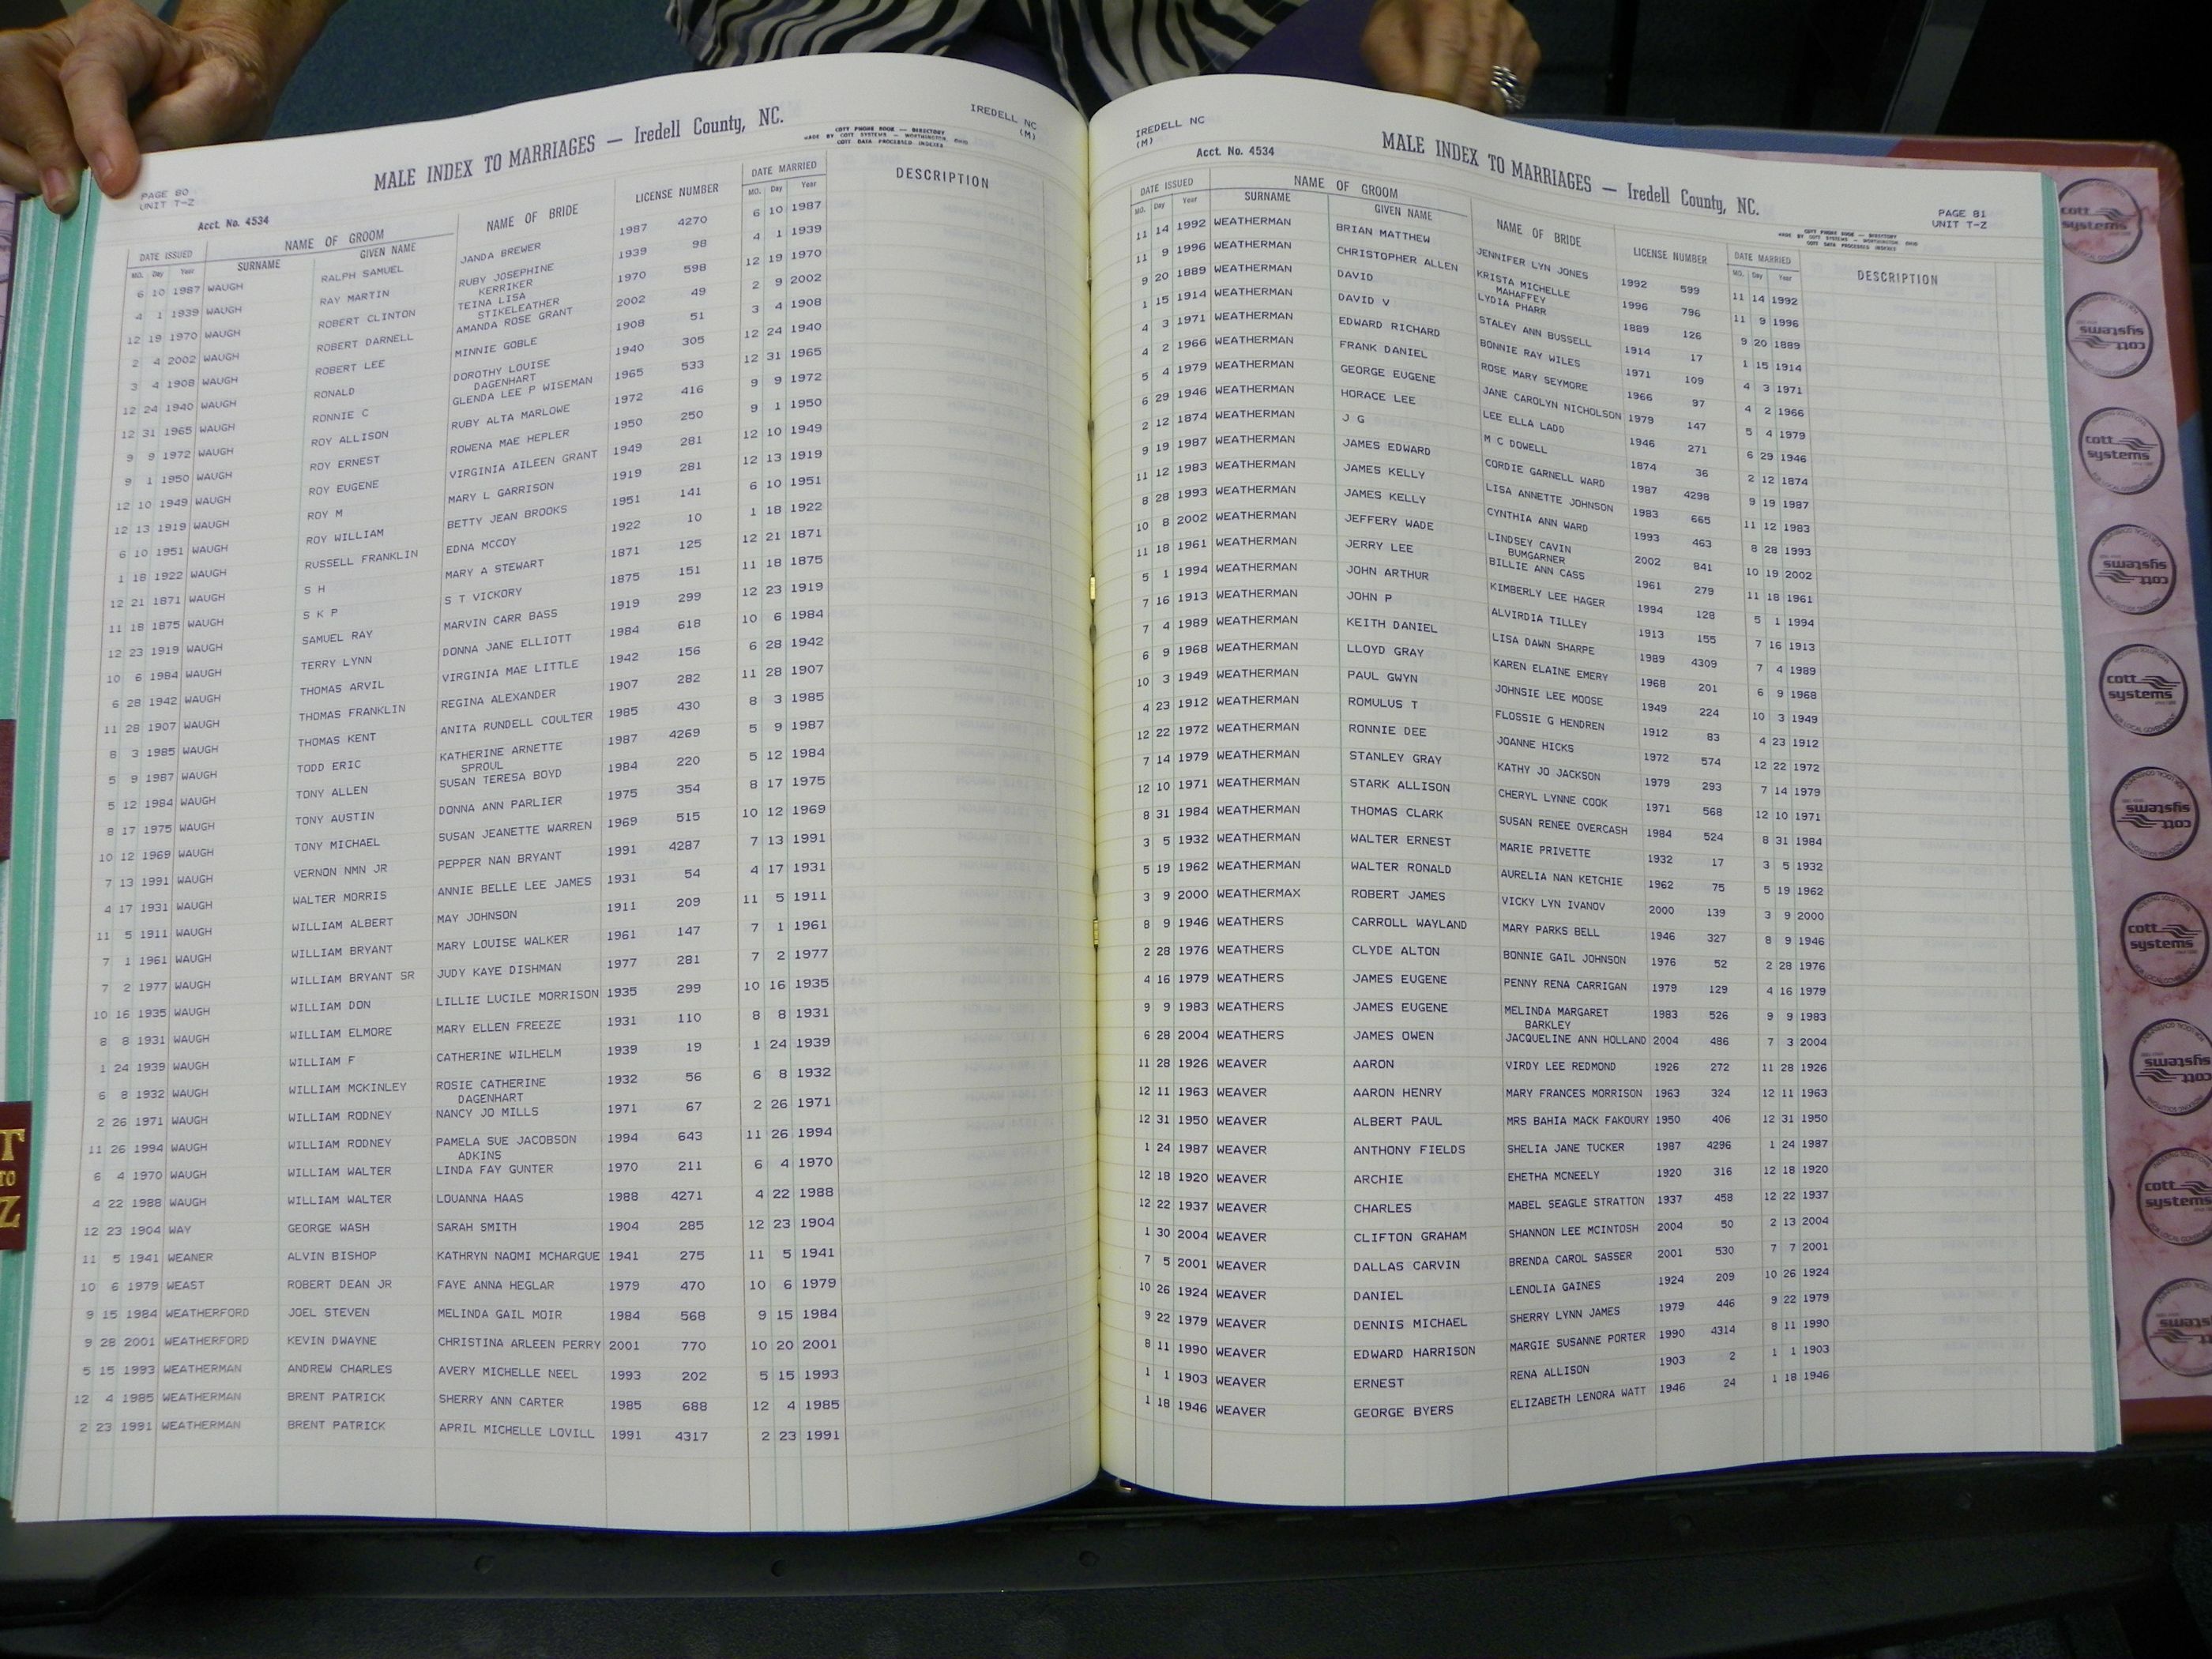 IREDELL NC
(M)
MALE INDEX TO MARRIAGES — Iredell County, NC.
COTT PHONE BOOK — DIRECTORY
MADE BY COTT SYSTEMS — WORTHINGTON, OHIO
COTT DATA PROCESSED INDEXES
PAGE 80
UNIT T-Z
Acct. No. 4534
DATE ISSUED NAME OF GROOM NAME OF BRIDE LICENSE NUMBER DATE MARRIED DESCRIPTION
MO. Day Year SURNAME GIVEN NAME MO. Day Year
6 10 1987 WAUGH RALPH SAMUEL JANDA BREWER 1987 4270 6 10 1987
4 1 1939 WAUGH RAY MARTIN RUBY JOSEPHINE 1939 98 4 1 1939
KERRIKER
12 19 1970 WAUGH ROBERT CLINTON TEINA LISA 1970 598 12 19 1970
STIKELEATHER
2 4 2002 WAUGH ROBERT DARNELL AMANDA ROSE GRANT 2002 49 2 9 2002
3 4 1908 WAUGH ROBERT LEE MINNIE GOBLE 1908 51 3 4 1908
12 24 1940 WAUGH RONALD DOROTHY LOUISE 1940 305 12 24 1940
DAGENHART
12 31 1965 WAUGH RONNIE C GLENDA LEE P WISEMAN 1965 533 12 31 1965
9 9 1972 WAUGH ROY ALLISON RUBY ALTA MARLOWE 1972 416 9 9 1972
9 1 1950 WAUGH ROY ERNEST ROWENA MAE HEPLER 1950 250 9 1 1950
12 10 1949 WAUGH ROY EUGENE VIRGINIA AILEEN GRANT 1949 281 12 10 1949
12 13 1919 WAUGH ROY M MARY L GARRISON 1919 281 12 13 1919
6 10 1951 WAUGH ROY WILLIAM BETTY JEAN BROOKS 1951 141 6 10 1951
1 18 1922 WAUGH RUSSELL FRANKLIN EDNA MCCOY 1922 10 1 18 1922
12 21 1871 WAUGH S H MARY A STEWART 1871 125 12 21 1871
11 18 1875 WAUGH S K P S T VICKORY 1875 151 11 18 1875
12 23 1919 WAUGH SAMUEL RAY MARVIN CARR BASS 1919 299 12 23 1919
10 6 1984 WAUGH TERRY LYNN DONNA JANE ELLIOTT 1984 618 10 6 1984
6 28 1942 WAUGH THOMAS ARVIL VIRGINIA MAE LITTLE 1942 156 6 28 1942
11 28 1907 WAUGH THOMAS FRANKLIN REGINA ALEXANDER 1907 282 11 28 1907
8 3 1985 WAUGH THOMAS KENT ANITA RUNDELL COULTER 1985 430 8 3 1985
5 9 1987 WAUGH TODD ERIC KATHERINE ARNETTE 1987 4269 5 9 1987
SPROUL
5 12 1984 WAUGH TONY ALLEN SUSAN TERESA BOYD 1984 220 5 12 1984
8 17 1975 WAUGH TONY AUSTIN DONNA ANN PARLIER 1975 354 8 17 1975
10 12 1969 WAUGH TONY MICHAEL SUSAN JEANETTE WARREN 1969 515 10 12 1969
7 13 1991 WAUGH VERNON NMN JR PEPPER NAN BRYANT 1991 4287 7 13 1991
4 17 1931 WAUGH WALTER MORRIS ANNIE BELLE LEE JAMES 1931 54 4 17 1931
11 5 1911 WAUGH WILLIAM ALBERT MAY JOHNSON 1911 209 11 5 1911
7 1 1961 WAUGH WILLIAM BRYANT MARY LOUISE WALKER 1961 147 7 1 1961
7 2 1977 WAUGH WILLIAM BRYANT SR JUDY KAYE DISHMAN 1977 281 7 2 1977
10 16 1935 WAUGH WILLIAM DON LILLIE LUCILE MORRISON 1935 299 10 16 1935
8 8 1931 WAUGH WILLIAM ELMORE MARY ELLEN FREEZE 1931 110 8 8 1931
1 24 1939 WAUGH WILLIAM F CATHERINE WILHELM 1939 19 1 24 1939
6 8 1932 WAUGH WILLIAM MCKINLEY ROSIE CATHERINE 1932 56 6 8 1932
DAGENHART
2 26 1971 WAUGH WILLIAM RODNEY NANCY JO MILLS 1971 67 2 26 1971
11 26 1994 WAUGH WILLIAM RODNEY PAMELA SUE JACOBSON 1994 643 11 26 1994
ADKINS
6 4 1970 WAUGH WILLIAM WALTER LINDA FAY GUNTER 1970 211 6 4 1970
4 22 1988 WAUGH WILLIAM WALTER LOUANNA HAAS 1988 4271 4 22 1988
12 23 1904 WAY GEORGE WASH SARAH SMITH 1904 285 12 23 1904
11 5 1941 WEANER ALVIN BISHOP KATHRYN NAOMI MCHARGUE 1941 275 11 5 1941
10 6 1979 WEAST ROBERT DEAN JR FAYE ANNA HEGLAR 1979 470 10 6 1979
9 15 1984 WEATHERFORD JOEL STEVEN MELINDA GAIL MOIR 1984 568 9 15 1984
9 28 2001 WEATHERFORD KEVIN DWAYNE CHRISTINA ARLEEN PERRY 2001 770 10 20 2001
5 15 1993 WEATHERMAN ANDREW CHARLES AVERY MICHELLE NEEL 1993 202 5 15 1993
12 4 1985 WEATHERMAN BRENT PATRICK SHERRY ANN CARTER 1985 688 12 4 1985
2 23 1991 WEATHERMAN BRENT PATRICK APRIL MICHELLE LOVILL 1991 4317 2 23 1991
T
TO
Z
IREDELL NC
(M)
Acct. No. 4534
MALE INDEX TO MARRIAGES — Iredell County, NC.
PAGE 81
UNIT T-Z
COTT PHONE BOOK — DIRECTORY
MADE BY COTT SYSTEMS — WORTHINGTON, OHIO
COTT DATA PROCESSED INDEXES
DATE ISSUED NAME OF GROOM NAME OF BRIDE LICENSE NUMBER DATE MARRIED DESCRIPTION
MO. Day Year SURNAME GIVEN NAME MO. Day Year
11 14 1992 WEATHERMAN BRIAN MATTHEW JENNIFER LYN JONES 1992 599 11 14 1992
11 9 1996 WEATHERMAN CHRISTOPHER ALLEN KRISTA MICHELLE 1996 796 11 9 1996
MAHAFFEY
9 20 1889 WEATHERMAN DAVID LYDIA PHARR 1889 126 9 20 1889
1 15 1914 WEATHERMAN DAVID V STALEY ANN BUSSELL 1914 17 1 15 1914
4 3 1971 WEATHERMAN EDWARD RICHARD BONNIE RAY WILES 1971 109 4 3 1971
4 2 1966 WEATHERMAN FRANK DANIEL ROSE MARY SEYMORE 1966 97 4 2 1966
5 4 1979 WEATHERMAN GEORGE EUGENE JANE CAROLYN NICHOLSON 1979 147 5 4 1979
6 29 1946 WEATHERMAN HORACE LEE LEE ELLA LADD 1946 271 6 29 1946
2 12 1874 WEATHERMAN J G M C DOWELL 1874 36 2 12 1874
9 19 1987 WEATHERMAN JAMES EDWARD CORDIE GARNELL WARD 1987 4298 9 19 1987
11 12 1983 WEATHERMAN JAMES KELLY LISA ANNETTE JOHNSON 1983 665 11 12 1983
8 28 1993 WEATHERMAN JAMES KELLY CYNTHIA ANN WARD 1993 463 8 28 1993
10 8 2002 WEATHERMAN JEFFERY WADE LINDSEY CAVIN 2002 841 10 19 2002
BUMGARNER
11 18 1961 WEATHERMAN JERRY LEE BILLIE ANN CASS 1961 279 11 18 1961
5 1 1994 WEATHERMAN JOHN ARTHUR KIMBERLY LEE HAGER 1994 128 5 1 1994
7 16 1913 WEATHERMAN JOHN P ALVIRDIA TILLEY 1913 155 7 16 1913
7 4 1989 WEATHERMAN KEITH DANIEL LISA DAWN SHARPE 1989 4309 7 4 1989
6 9 1968 WEATHERMAN LLOYD GRAY KAREN ELAINE EMERY 1968 201 6 9 1968
10 3 1949 WEATHERMAN PAUL GWYN JOHNSIE LEE MOOSE 1949 224 10 3 1949
4 23 1912 WEATHERMAN ROMULUS T FLOSSIE G HENDREN 1912 83 4 23 1912
12 22 1972 WEATHERMAN RONNIE DEE JOANNE HICKS 1972 574 12 22 1972
7 14 1979 WEATHERMAN STANLEY GRAY KATHY JO JACKSON 1979 293 7 14 1979
12 10 1971 WEATHERMAN STARK ALLISON CHERYL LYNNE COOK 1971 568 12 10 1971
8 31 1984 WEATHERMAN THOMAS CLARK SUSAN RENEE OVERCASH 1984 524 8 31 1984
3 5 1932 WEATHERMAN WALTER ERNEST MARIE PRIVETTE 1932 17 3 5 1932
5 19 1962 WEATHERMAN WALTER RONALD AURELIA NAN KETCHIE 1962 75 5 19 1962
3 9 2000 WEATHERMAX ROBERT JAMES VICKY LYN IVANOV 2000 139 3 9 2000
8 9 1946 WEATHERS CARROLL WAYLAND MARY PARKS BELL 1946 327 8 9 1946
2 28 1976 WEATHERS CLYDE ALTON BONNIE GAIL JOHNSON 1976 52 2 28 1976
4 16 1979 WEATHERS JAMES EUGENE PENNY RENA CARRIGAN 1979 129 4 16 1979
9 9 1983 WEATHERS JAMES EUGENE MELINDA MARGARET 1983 526 9 9 1983
BARKLEY
6 28 2004 WEATHERS JAMES OWEN JACQUELINE ANN HOLLAND 2004 486 7 3 2004
11 28 1926 WEAVER AARON VIRDY LEE REDMOND 1926 272 11 28 1926
12 11 1963 WEAVER AARON HENRY MARY FRANCES MORRISON 1963 324 12 11 1963
12 31 1950 WEAVER ALBERT PAUL MRS BAHIA MACK FAKOURY 1950 406 12 31 1950
1 24 1987 WEAVER ANTHONY FIELDS SHELIA JANE TUCKER 1987 4296 1 24 1987
12 18 1920 WEAVER ARCHIE EHETHA MCNEELY 1920 316 12 18 1920
12 22 1937 WEAVER CHARLES MABEL SEAGLE STRATTON 1937 458 12 22 1937
1 30 2004 WEAVER CLIFTON GRAHAM SHANNON LEE MCINTOSH 2004 50 2 13 2004
7 5 2001 WEAVER DALLAS CARVIN BRENDA CAROL SASSER 2001 530 7 7 2001
10 26 1924 WEAVER DANIEL LENOLIA GAINES 1924 209 10 26 1924
9 22 1979 WEAVER DENNIS MICHAEL SHERRY LYNN JAMES 1979 446 9 22 1979
8 11 1990 WEAVER EDWARD HARRISON MARGIE SUSANNE PORTER 1990 4314 8 11 1990
1 1 1903 WEAVER ERNEST RENA ALLISON 1903 2 1 1 1903
1 18 1946 WEAVER GEORGE BYERS ELIZABETH LENORA WATT 1946 24 1 18 1946
cott
systems
cott
systems
cott
systems
cott
systems
cott
systems
cott
systems
cott
systems
cott
systems
cott
systems
cott
systems